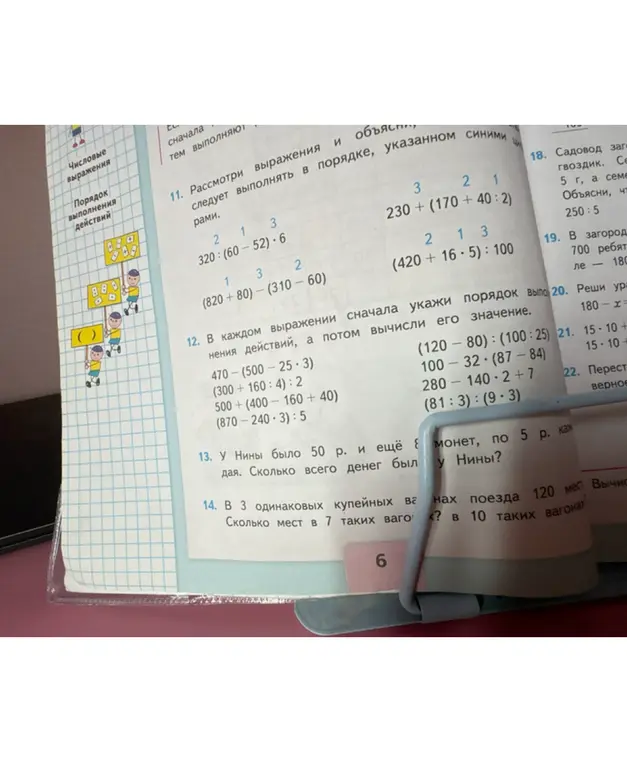 Числовые
выражения
Порядок
выполнения
действий
( )
сначала
тем выполняют
11. Рассмотри выражения и объясни,
следует выполнять в порядке, указанном синими
рами.
2 1 3
320 : (60 − 52) · 6
3 2 1
230 + (170 + 40 : 2)
1 3 2
(820 + 80) − (310 − 60)
2 1 3
(420 + 16 · 5) : 100
12. В каждом выражении сначала укажи порядок выпо
нения действий, а потом вычисли его значение.
470 − (500 − 25 · 3)
(300 + 160 : 4) : 2
500 + (400 − 160 + 40)
(870 − 240 · 3) : 5
(120 − 80) : (100 : 25)
100 − 32 · (87 − 84)
280 − 140 · 2 + 7
(81 : 3) : (9 · 3)
13. У Нины было 50 р. и ещё 8 монет, по 5 р. каж
дая. Сколько всего денег был у Нины?
14. В 3 одинаковых купейных ва нах поезда 120 мест
Сколько мест в 7 таких ваго х? в 10 таких вагонах
6
18. Садовод заг
гвоздик. Се
5 г, а семе
Объясни, ч
250 : 5
19. В загород
700 ребят
ле — 180
20. Реши ура
180 − x =
21. 15 · 10 +
15 · 10 +
22. Перест
верно
Вычис